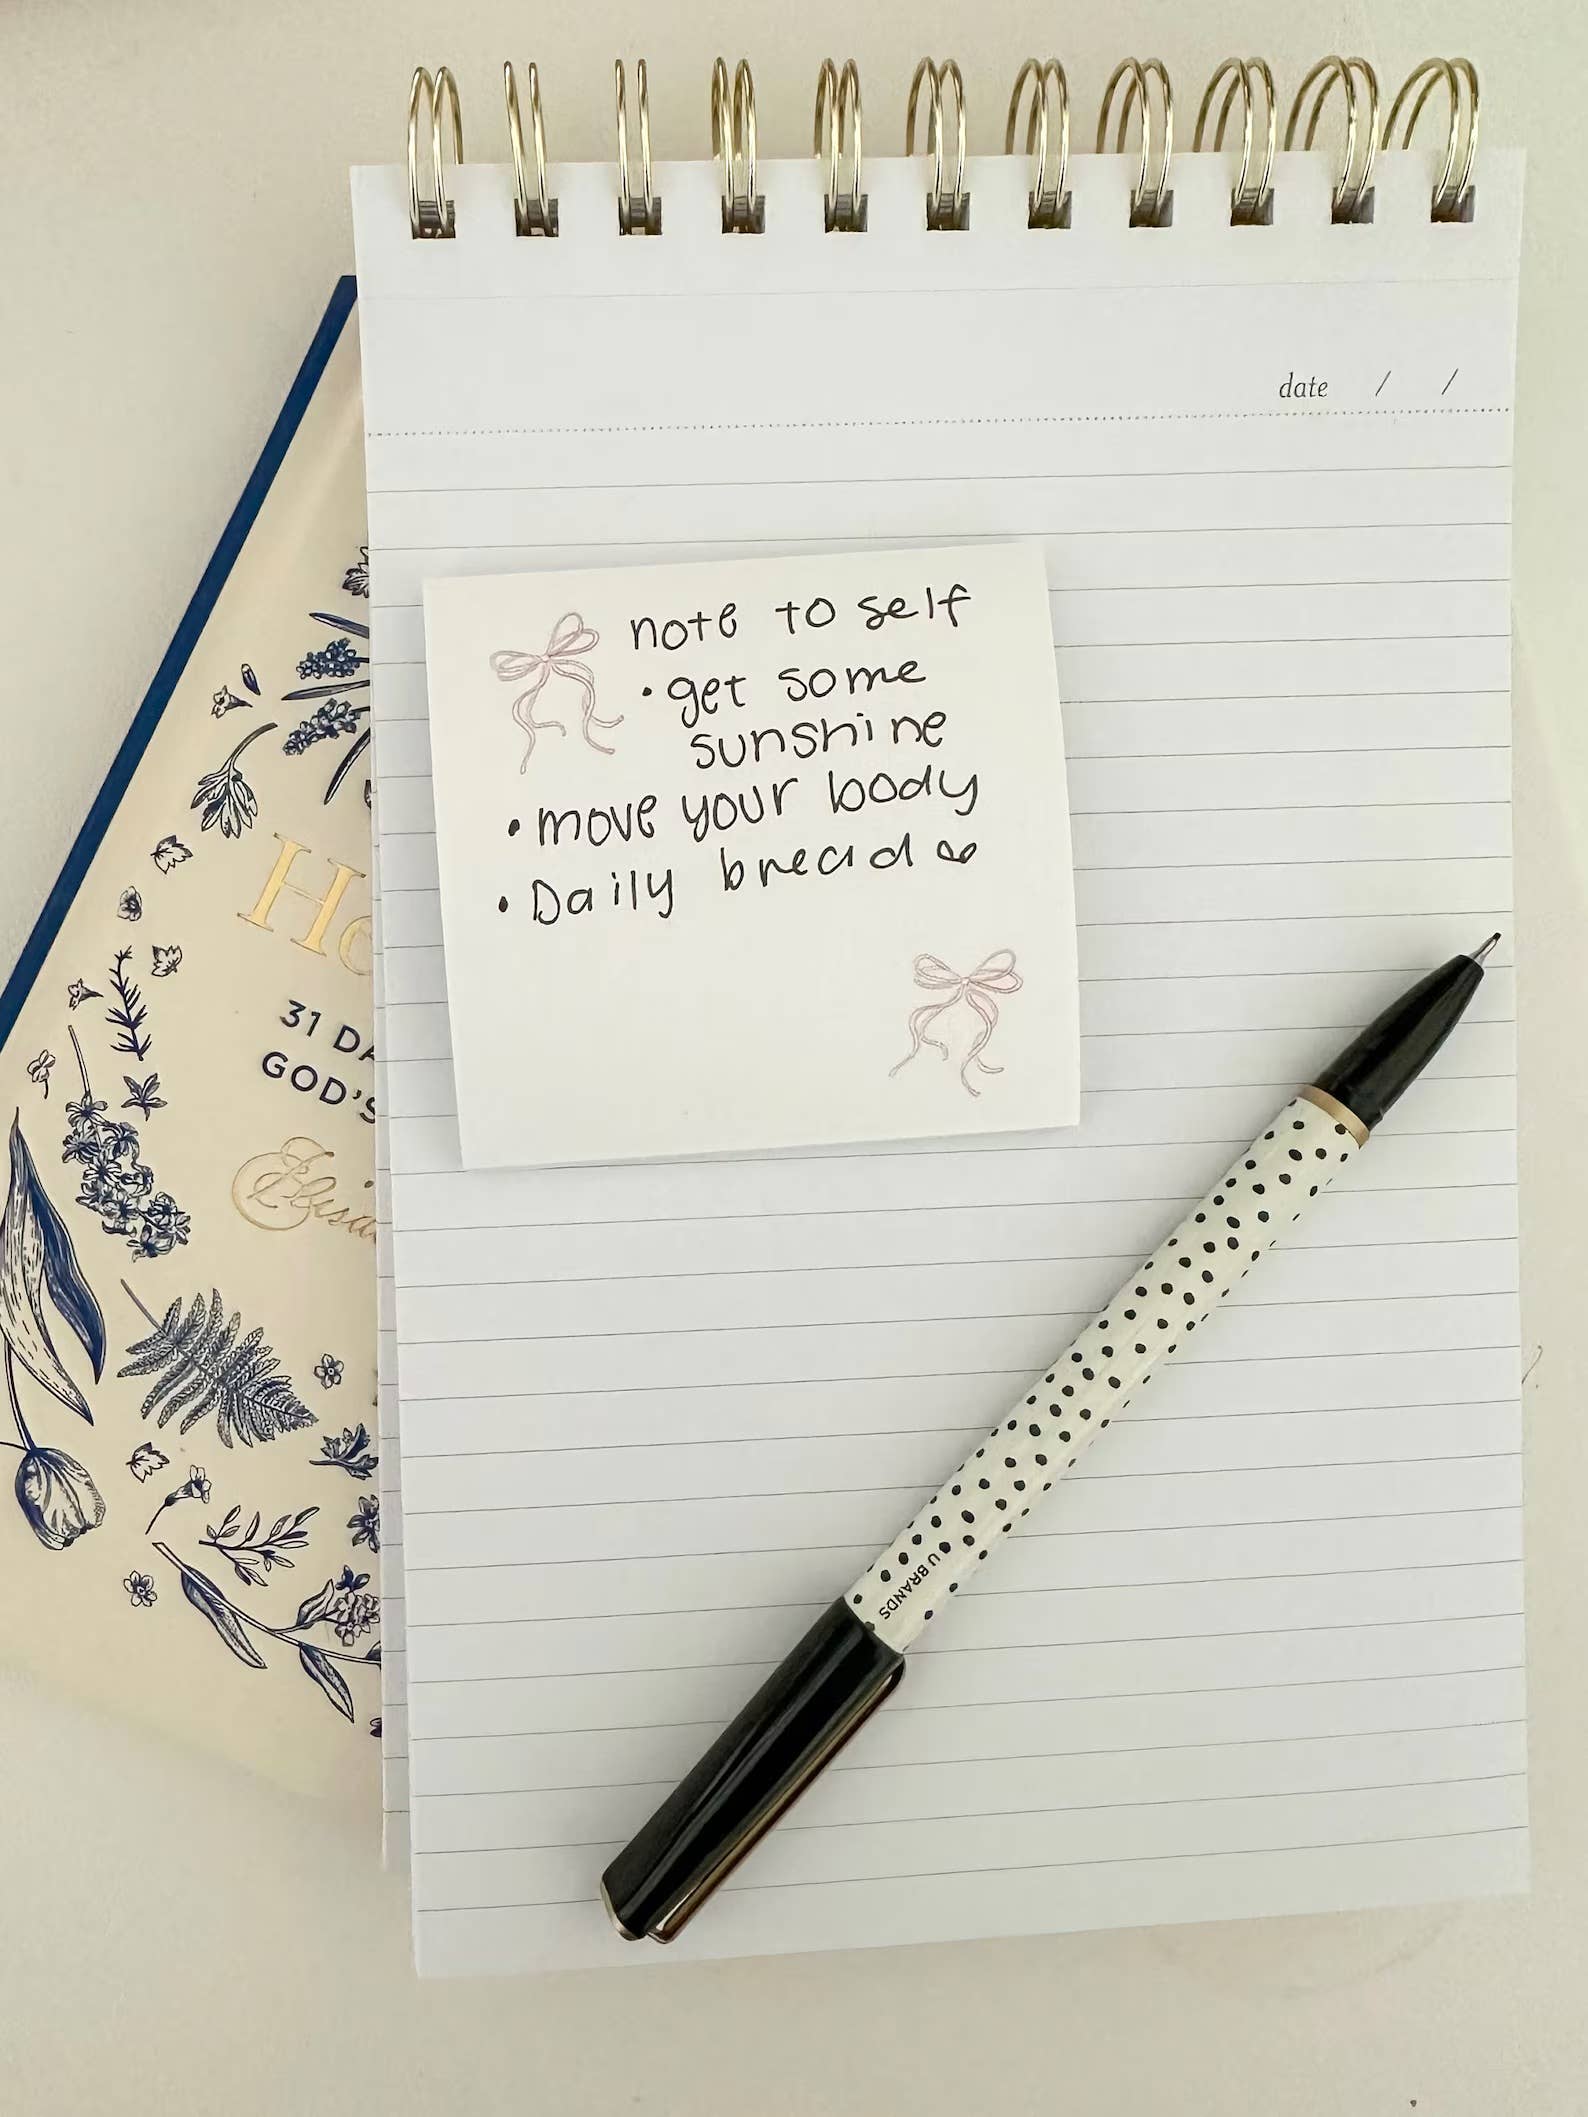 date / /
note to self
• get some
sunshine
• move your body
• Daily bread
31 DA
GOD'S
U BRANDS